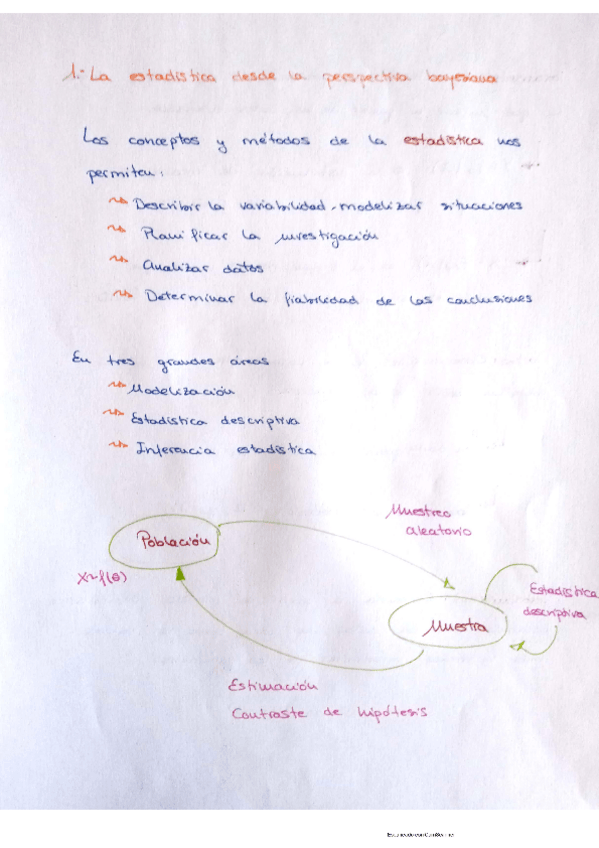 1.- La estadística desde la perspectiva bayesiana
Los conceptos y métodos de la estadística nos
permiten:
Describir la variabilidad - modelizar situaciones
Planificar la investigación
Analizar datos
Determinar la fiabilidad de las conclusiones
En tres grandes áreas
Modelización
Estadística descriptiva
Inferencia estadística
Muestreo
aleatorio
Población
X~f(θ)
Estadística
descriptiva
Muestra
Estimación
Contraste de hipótesis
Escaneado con CamScanner